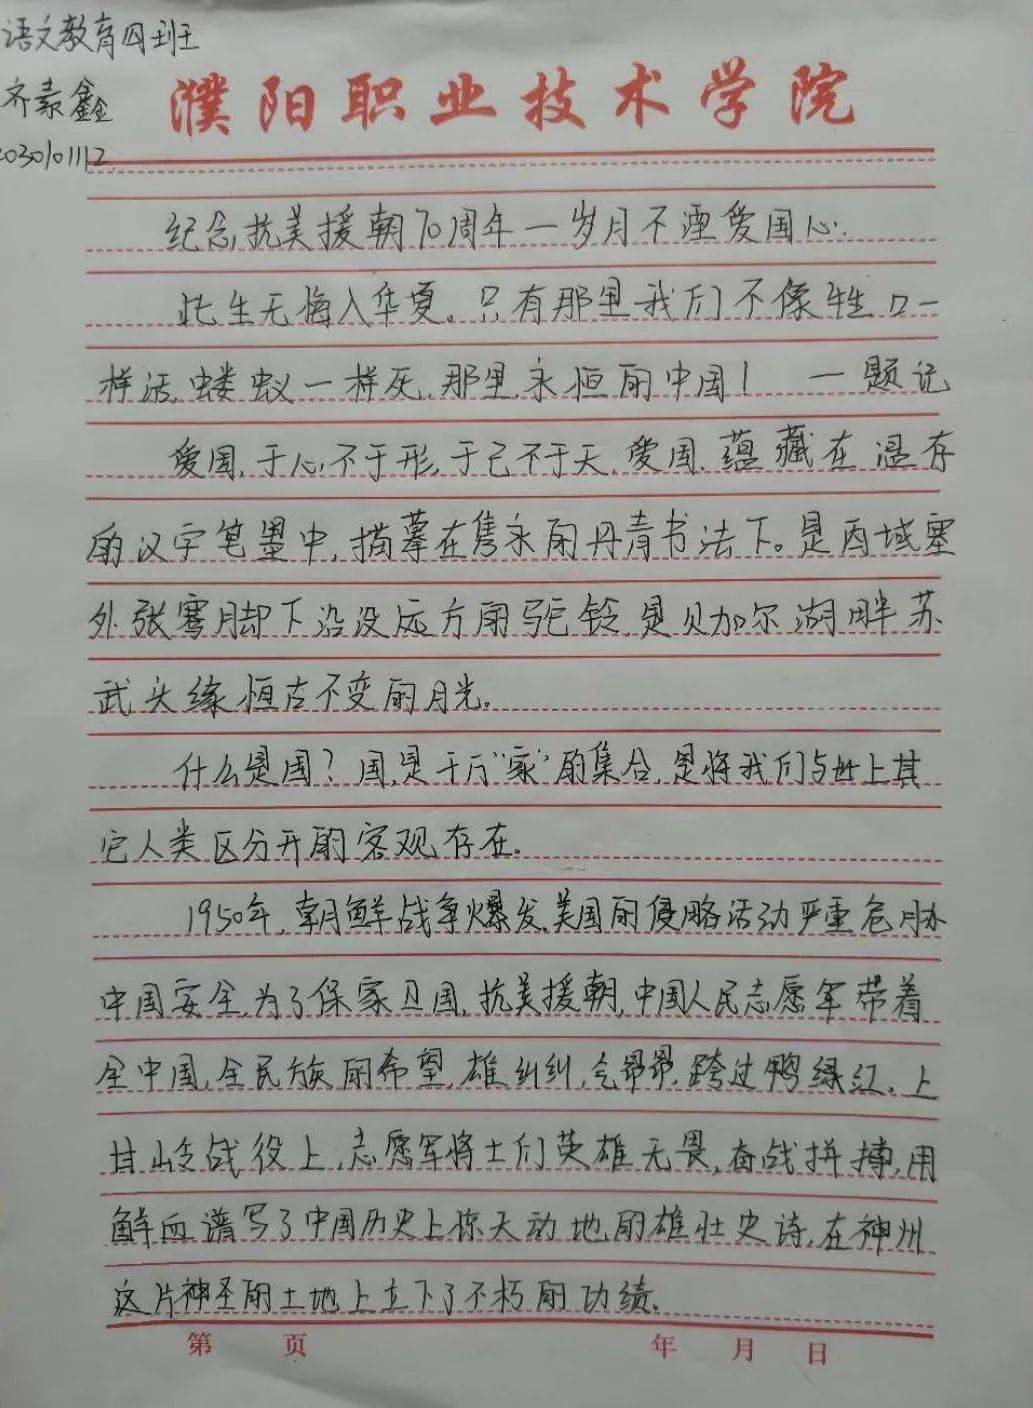 语文教育四班
齐素鑫
2030101112
濮阳职业技术学院
纪念抗美援朝70周年一岁月不湮爱国心.
此生无悔入华夏。只有那里我们不像牲口一
样活,蝼蚁一样死,那里,永恒的中国！ 一题记
爱国,于心不于形,于己不于天,爱国,蕴藏在温存
的汉字笔墨中,描摹在隽永的丹青书法下。是西域塞
外张骞脚下沿没远方的驼铃,是贝加尔湖畔苏
武头缘恒古不变的月光。
什么是国？国,是千万“家”的集合,是将我们与世上其
它人类区分开的客观存在。
1950年,朝鲜战争爆发,美国的侵略活动严重危胁
中国安全,为了保家卫国,抗美援朝,中国人民志愿军带着
全中国,全民族的希望,雄纠纠,气昂昂,跨过鸭绿江。上
甘岭战役上,志愿军将士们英雄无畏,奋战拼搏,用
鲜血谱写了中国历史上惊天动地的雄壮史诗,在神州
这片神圣的土地上立下了不朽的功绩。
第 页 年 月 日